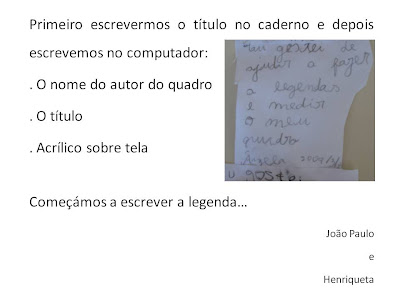 Primeiro escrevermos o título no caderno e depois
escrevemos no computador:
. O nome do autor do quadro
. O título
. Acrílico sobre tela
gostei de
ajudar a fazer
a legendas
e medir
o meu
quadro
Começámos a escrever a legenda...
João Paulo
e
Henriqueta